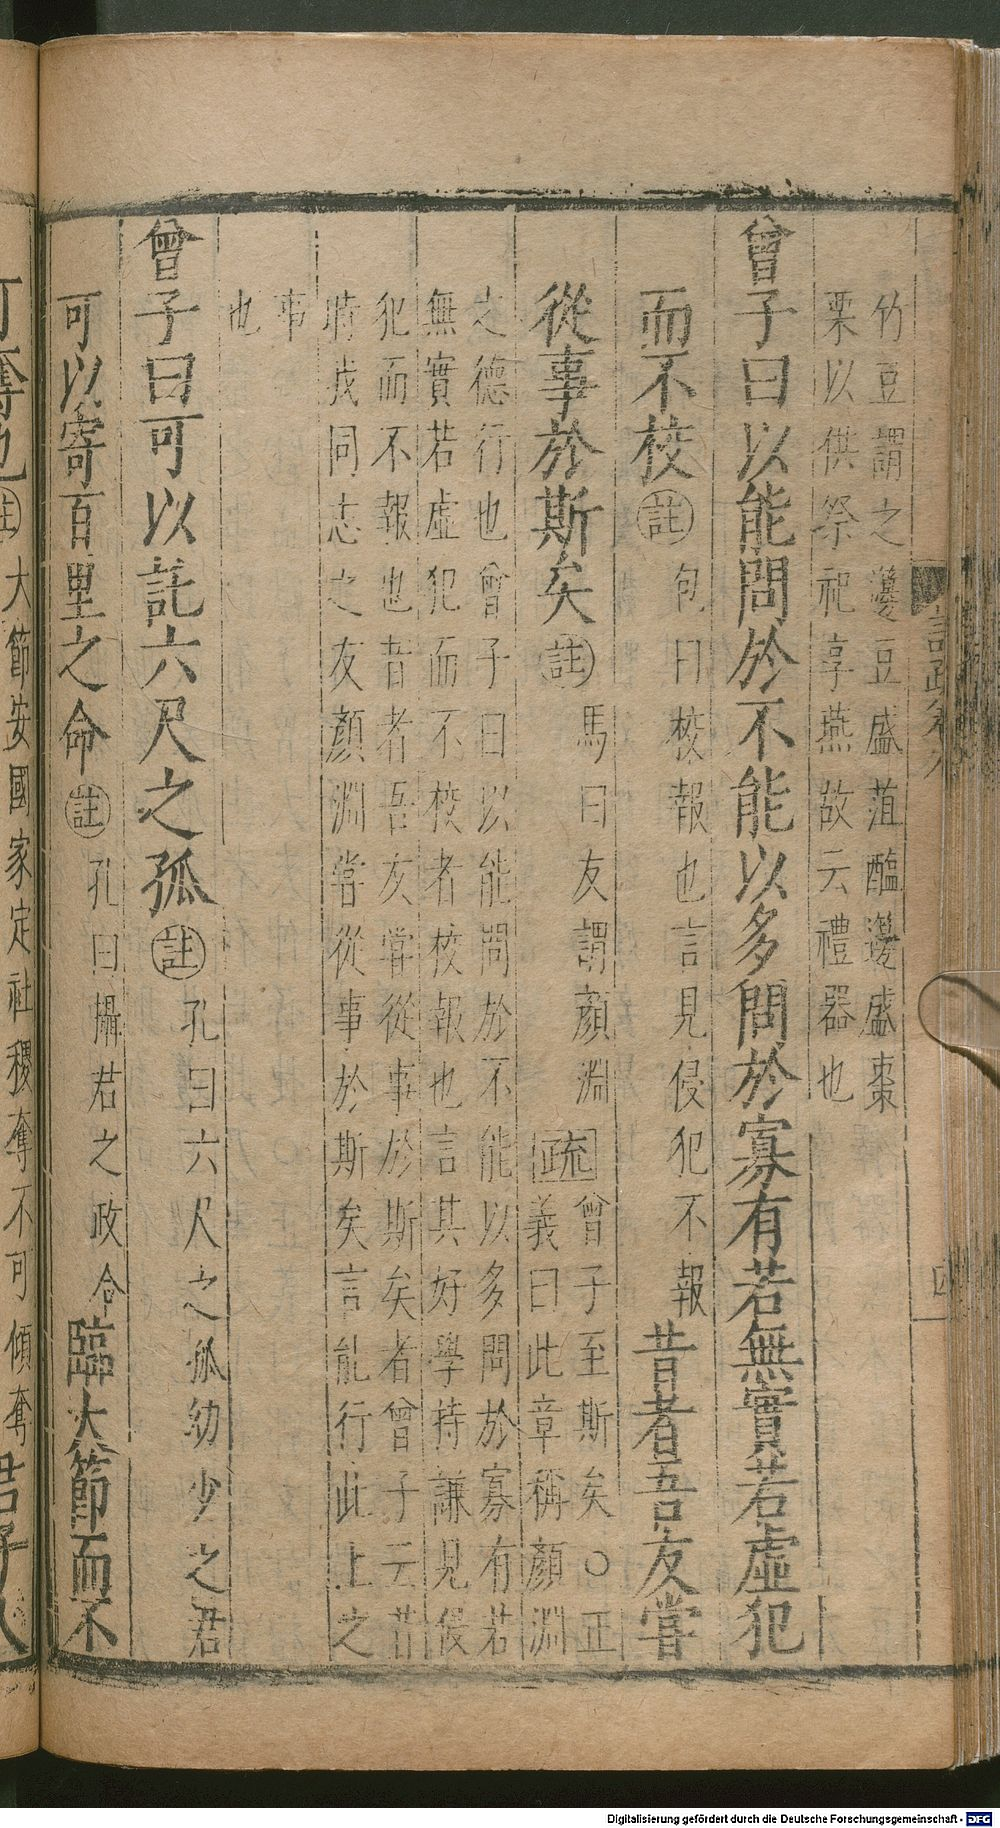 竹豆謂之籩豆盛菹醢籩盛棗
栗以供祭祀享燕故云禮器也
曾子曰以能問於不能以多問於寡有若無實若虛犯
而不校註包曰校報也言見侵犯不報昔者吾友嘗
從事於斯矣註馬曰友謂顏淵疏曾子至斯矣○正
義曰此章稱顏淵
之德行也曾子曰以能問於不能以多問於寡有若
無實若虛犯而不校者校報也言其好學持謙見侵
犯而不報也昔者吾友嘗從事於斯矣者曾子云昔
時我同志之友顏淵嘗從事於斯矣言能行此上之
事
也
曾子曰可以託六尺之孤註孔曰六尺之孤幼少之君
可以寄百里之命註孔曰攝君之政令臨大節而不
可奪也註大節安國家定社稷奪不可傾奪君子人
Digitalisierung gefördert durch die Deutsche Forschungsgemeinschaft - DFG